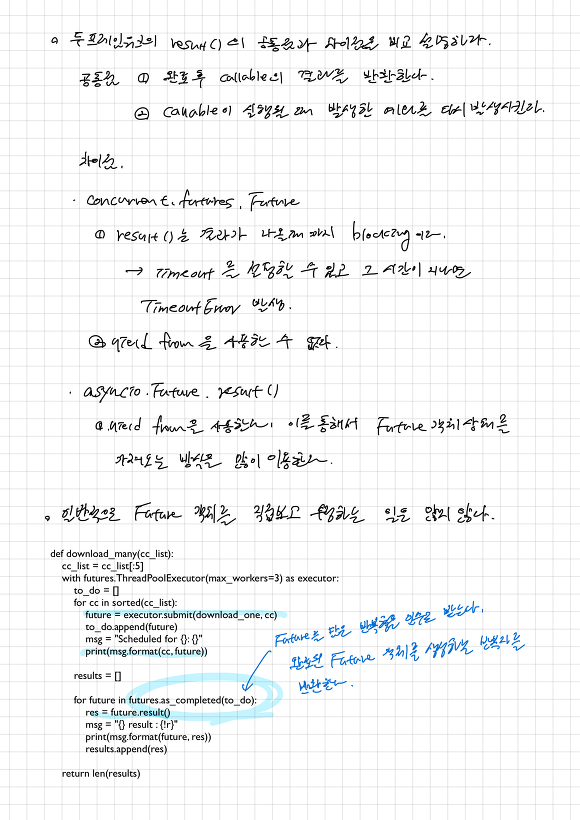 두 프레임워크의 result()의 공통점과 차이점을 비교 설명하라.
공통점 ① 완료 후 callable의 결과를 반환한다.
② callable이 실행될 때 발생한 에러를 다시 발생시킨다.
차이점.
· concurrent.futures.Future
① result()는 결과가 나올때 까지 blocking 이다.
→ Timeout 을 설정할 수 있고 그 시간이 지나면
TimeoutError 발생.
② yield from 을 사용할 수 없다.
· asyncio.Future.result()
① yield from을 사용한다. 이를 통해서 Future 객체 상태를
가져오는 방식을 많이 이용한다.
일반적으로 Future 객체를 직접보고 수행하는 일은 많지 않다.
def download_many(cc_list):
cc_list = cc_list[:5]
with futures.ThreadPoolExecutor(max_workers=3) as executor:
to_do = []
for cc in sorted(cc_list):
future = executor.submit(download_one, cc)
to_do.append(future)
msg = "Scheduled for {}: {}"
print(msg.format(cc, future))
Future를 담은 반복형을 인수로 받는다.
완료된 Future 객체를 생성하는 반복자를
반환한다.
results = []
for future in futures.as_completed(to_do):
res = future.result()
msg = "{} result : {!r}"
print(msg.format(future, res))
results.append(res)
return len(results)